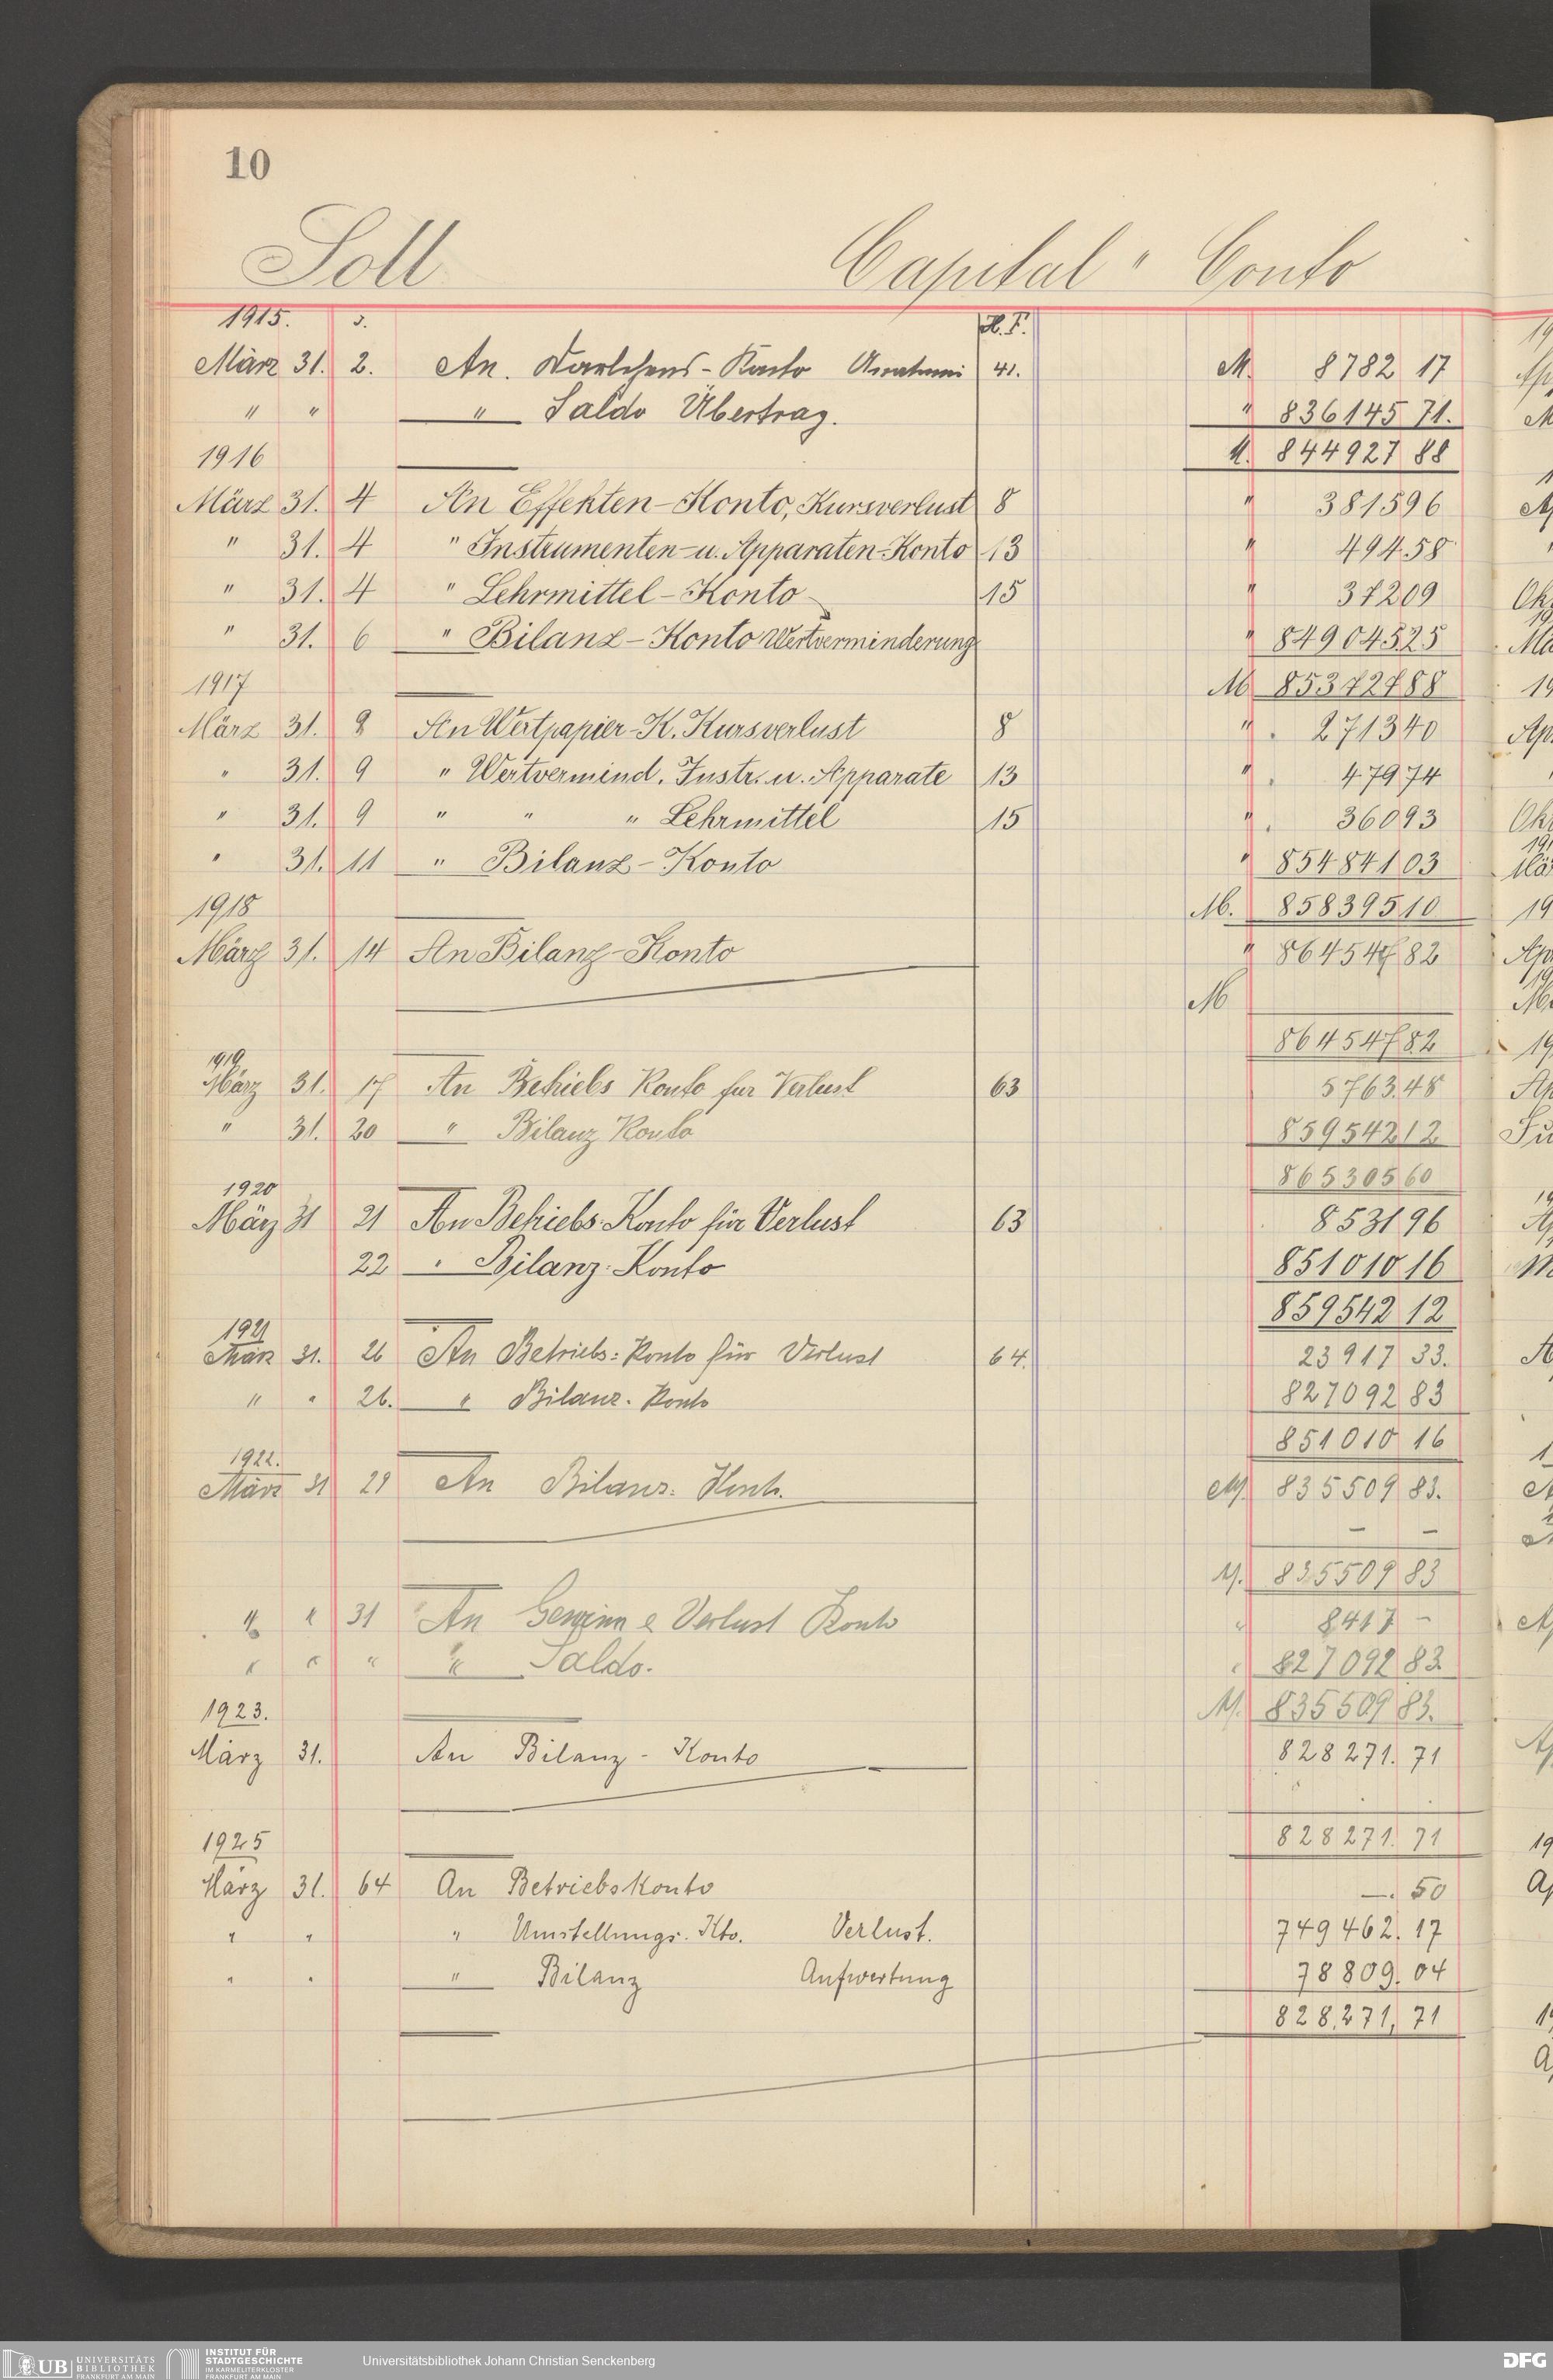 10
Soll Capital " Conto
1915. J. H. F.
März 31. 2. An. Darlehens-Konto 41. M. 8782 17
" " " Saldo Übertrag. " 836145 71.
1916 M. 844927 88
März 31. 4 An Effekten-Konto, Kursverlust 8 " 3815 96
" 31. 4 " Instrumenten-u. Apparaten-Konto 13 " 494 58
" 31. 4 " Lehrmittel-Konto 15 " 372 09
" 31. 6 " Bilanz-Konto Wertverminderung " 849045 25
1917 M 853727 88
März 31. 9 An Wertpapier-K. Kursverlust 8 " 2713 40
" 31. 9 " Wertvermind. Instr. u. Apparate 13 " 479 74
" 31. 9 " " " Lehrmittel 15 " 360 93
" 31. 11 " Bilanz-Konto " 854841 03
1918 M. 858395 10
März 31. 14 An Bilanz-Konto " 864547 82
M
864547 82
1919
März 31. 17 An Betriebs Konto für Verlust 63 5763.48
" 31. 20 " Bilanz Konto 859542 12
865305 60
1920
März 31 21 An Betriebs-Konto für Verlust 63 8531 96
22 " Bilanz-Konto 851010 16
859542 12
1921
März 31. 26 An Betriebs-Konto für Verlust 64. 23917 33.
" " 26. " Bilanz-Konto 827092 83
851010 16
1922.
März 31 29 An Bilanz-Konto. M. 835509 83.
— —
M. 835509 83
" " 31 An Gewinn & Verlust Konto " 8417 —
" " " " Saldo. " 827092 83
1923. M. 835509 83.
März 31. An Bilanz-Konto 828271. 71
828271. 71
1925
März 31. 64 An Betriebskonto —. 50
" " " Umstellungs-Kto. Verlust. 749462. 17
" " " Bilanz Aufwertung 78809. 04
828.271, 71
UB UNIVERSITÄTS BIBLIOTHEK FRANKFURT AM MAIN
INSTITUT FÜR STADTGESCHICHTE IM KARMELITERKLOSTER FRANKFURT AM MAIN
Universitätsbibliothek Johann Christian Senckenberg
DFG